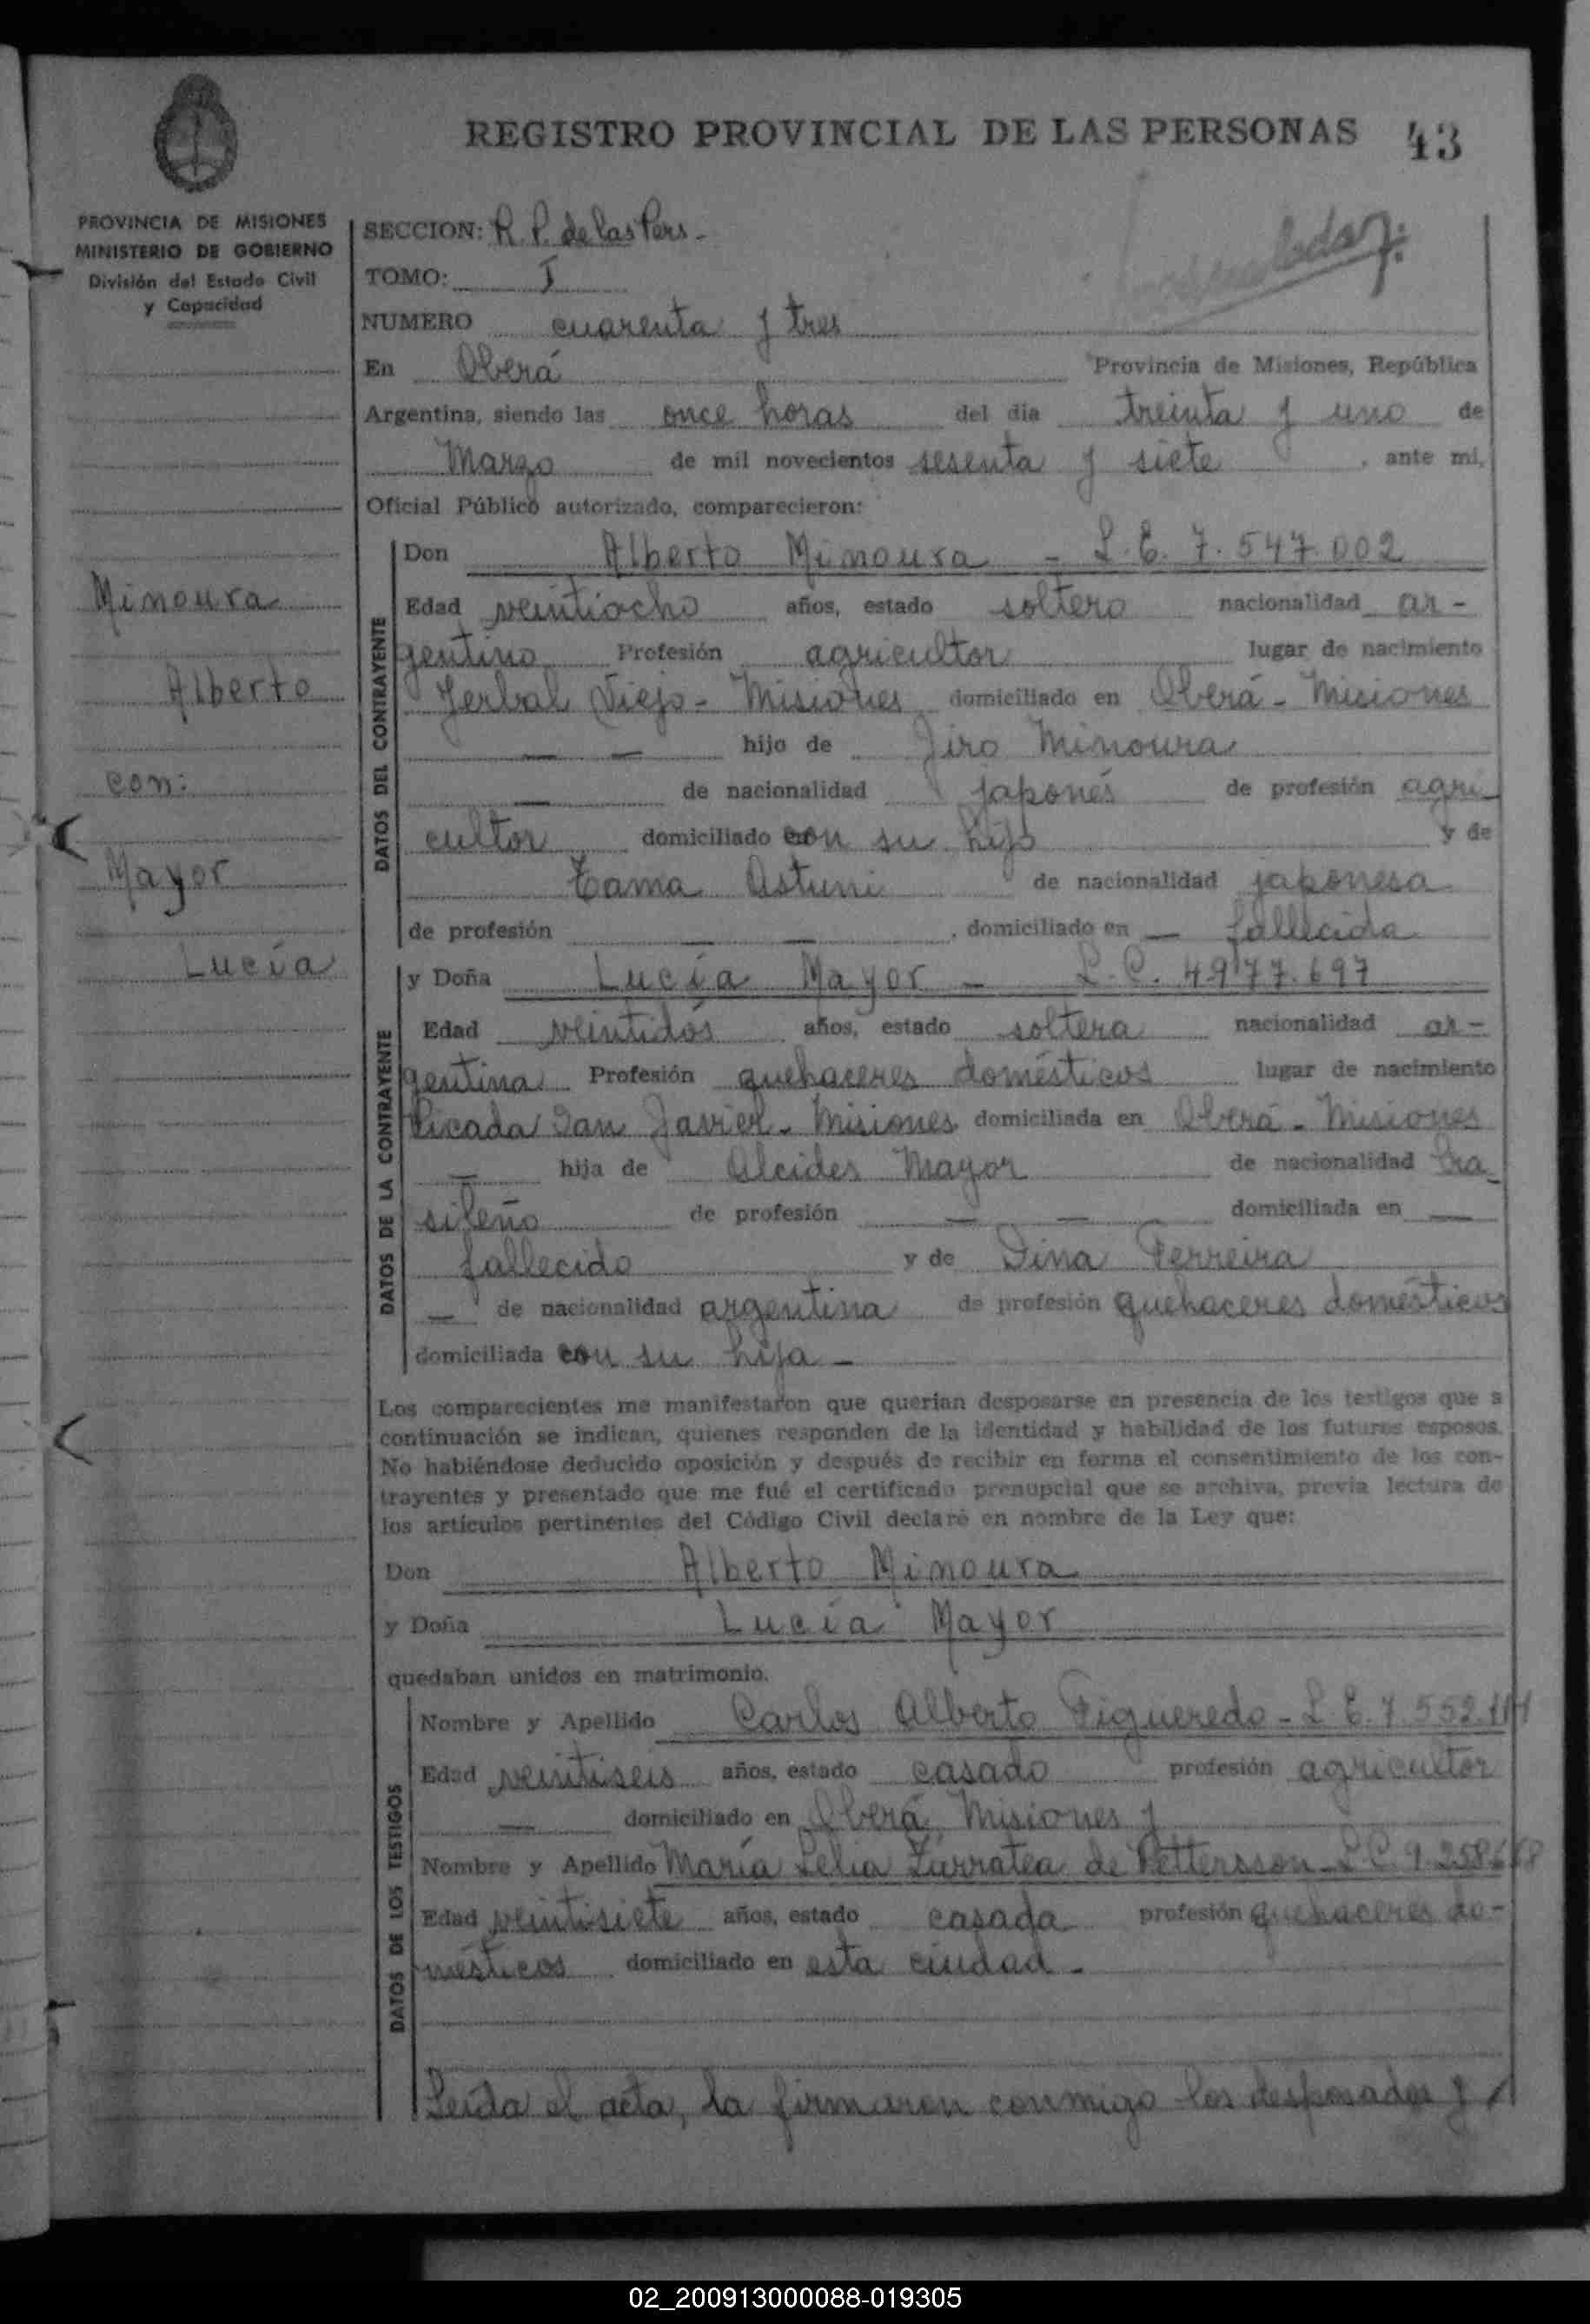 REGISTRO PROVINCIAL DE LAS PERSONAS 43
PROVINCIA DE MISIONES
MINISTERIO DE GOBIERNO
División del Estado Civil
y Capacidad
Minoura
Alberto
con:
Mayor
Lucía
SECCION: R. P. de las Pers.
TOMO: I
NUMERO cuarenta y tres
En Oberá Provincia de Misiones, República
Argentina, siendo las once horas del día treinta y uno de
Marzo de mil novecientos sesenta y siete, ante mi,
Oficial Público autorizado, comparecieron:
DATOS DEL CONTRAYENTE
Don Alberto Minoura - L. E. 7.547.002
Edad veintiocho años, estado soltero nacionalidad ar-
gentino Profesión agricultor lugar de nacimiento
Yerbal Viejo - Misiones domiciliado en Oberá - Misiones
— — hijo de Jiro Minoura
— de nacionalidad japonés de profesión agri-
cultor domiciliado con su hijo y de
Tama Astuni de nacionalidad japonesa
de profesión — —, domiciliado en — fallecida
DATOS DE LA CONTRAYENTE
y Doña Lucía Mayor - L. C. 4.977.697
Edad veintidós años, estado soltera nacionalidad ar-
gentina Profesión quehaceres domésticos lugar de nacimiento
Picada San Javier - Misiones domiciliada en Oberá - Misiones
— hija de Alcides Mayor de nacionalidad bra-
sileño de profesión — — domiciliada en —
fallecido y de Dina Ferreira
— de nacionalidad argentina de profesión quehaceres domésticos
domiciliada con su hija -
Los comparecientes me manifestaron que querían desposarse en presencia de los testigos que a
continuación se indican, quienes responden de la identidad y habilidad de los futuros esposos.
No habiéndose deducido oposición y después de recibir en forma el consentimiento de los con-
trayentes y presentado que me fué el certificado prenupcial que se archiva, previa lectura de
los artículos pertinentes del Código Civil declaré en nombre de la Ley que:
Don Alberto Minoura
y Doña Lucía Mayor
quedaban unidos en matrimonio.
DATOS DE LOS TESTIGOS
Nombre y Apellido Carlos Alberto Figueredo - L. E. 7.552.114
Edad veintiseis años, estado casado profesión agricultor
— domiciliado en Oberá Misiones y
Nombre y Apellido María Lelia Zurratea de Pettersson - L. C. 9.258.668
Edad veintisiete años, estado casada profesión quehaceres do-
mésticos domiciliado en esta ciudad -
Leída el acta, la firmaron conmigo los desposados y
02_200913000088-019305